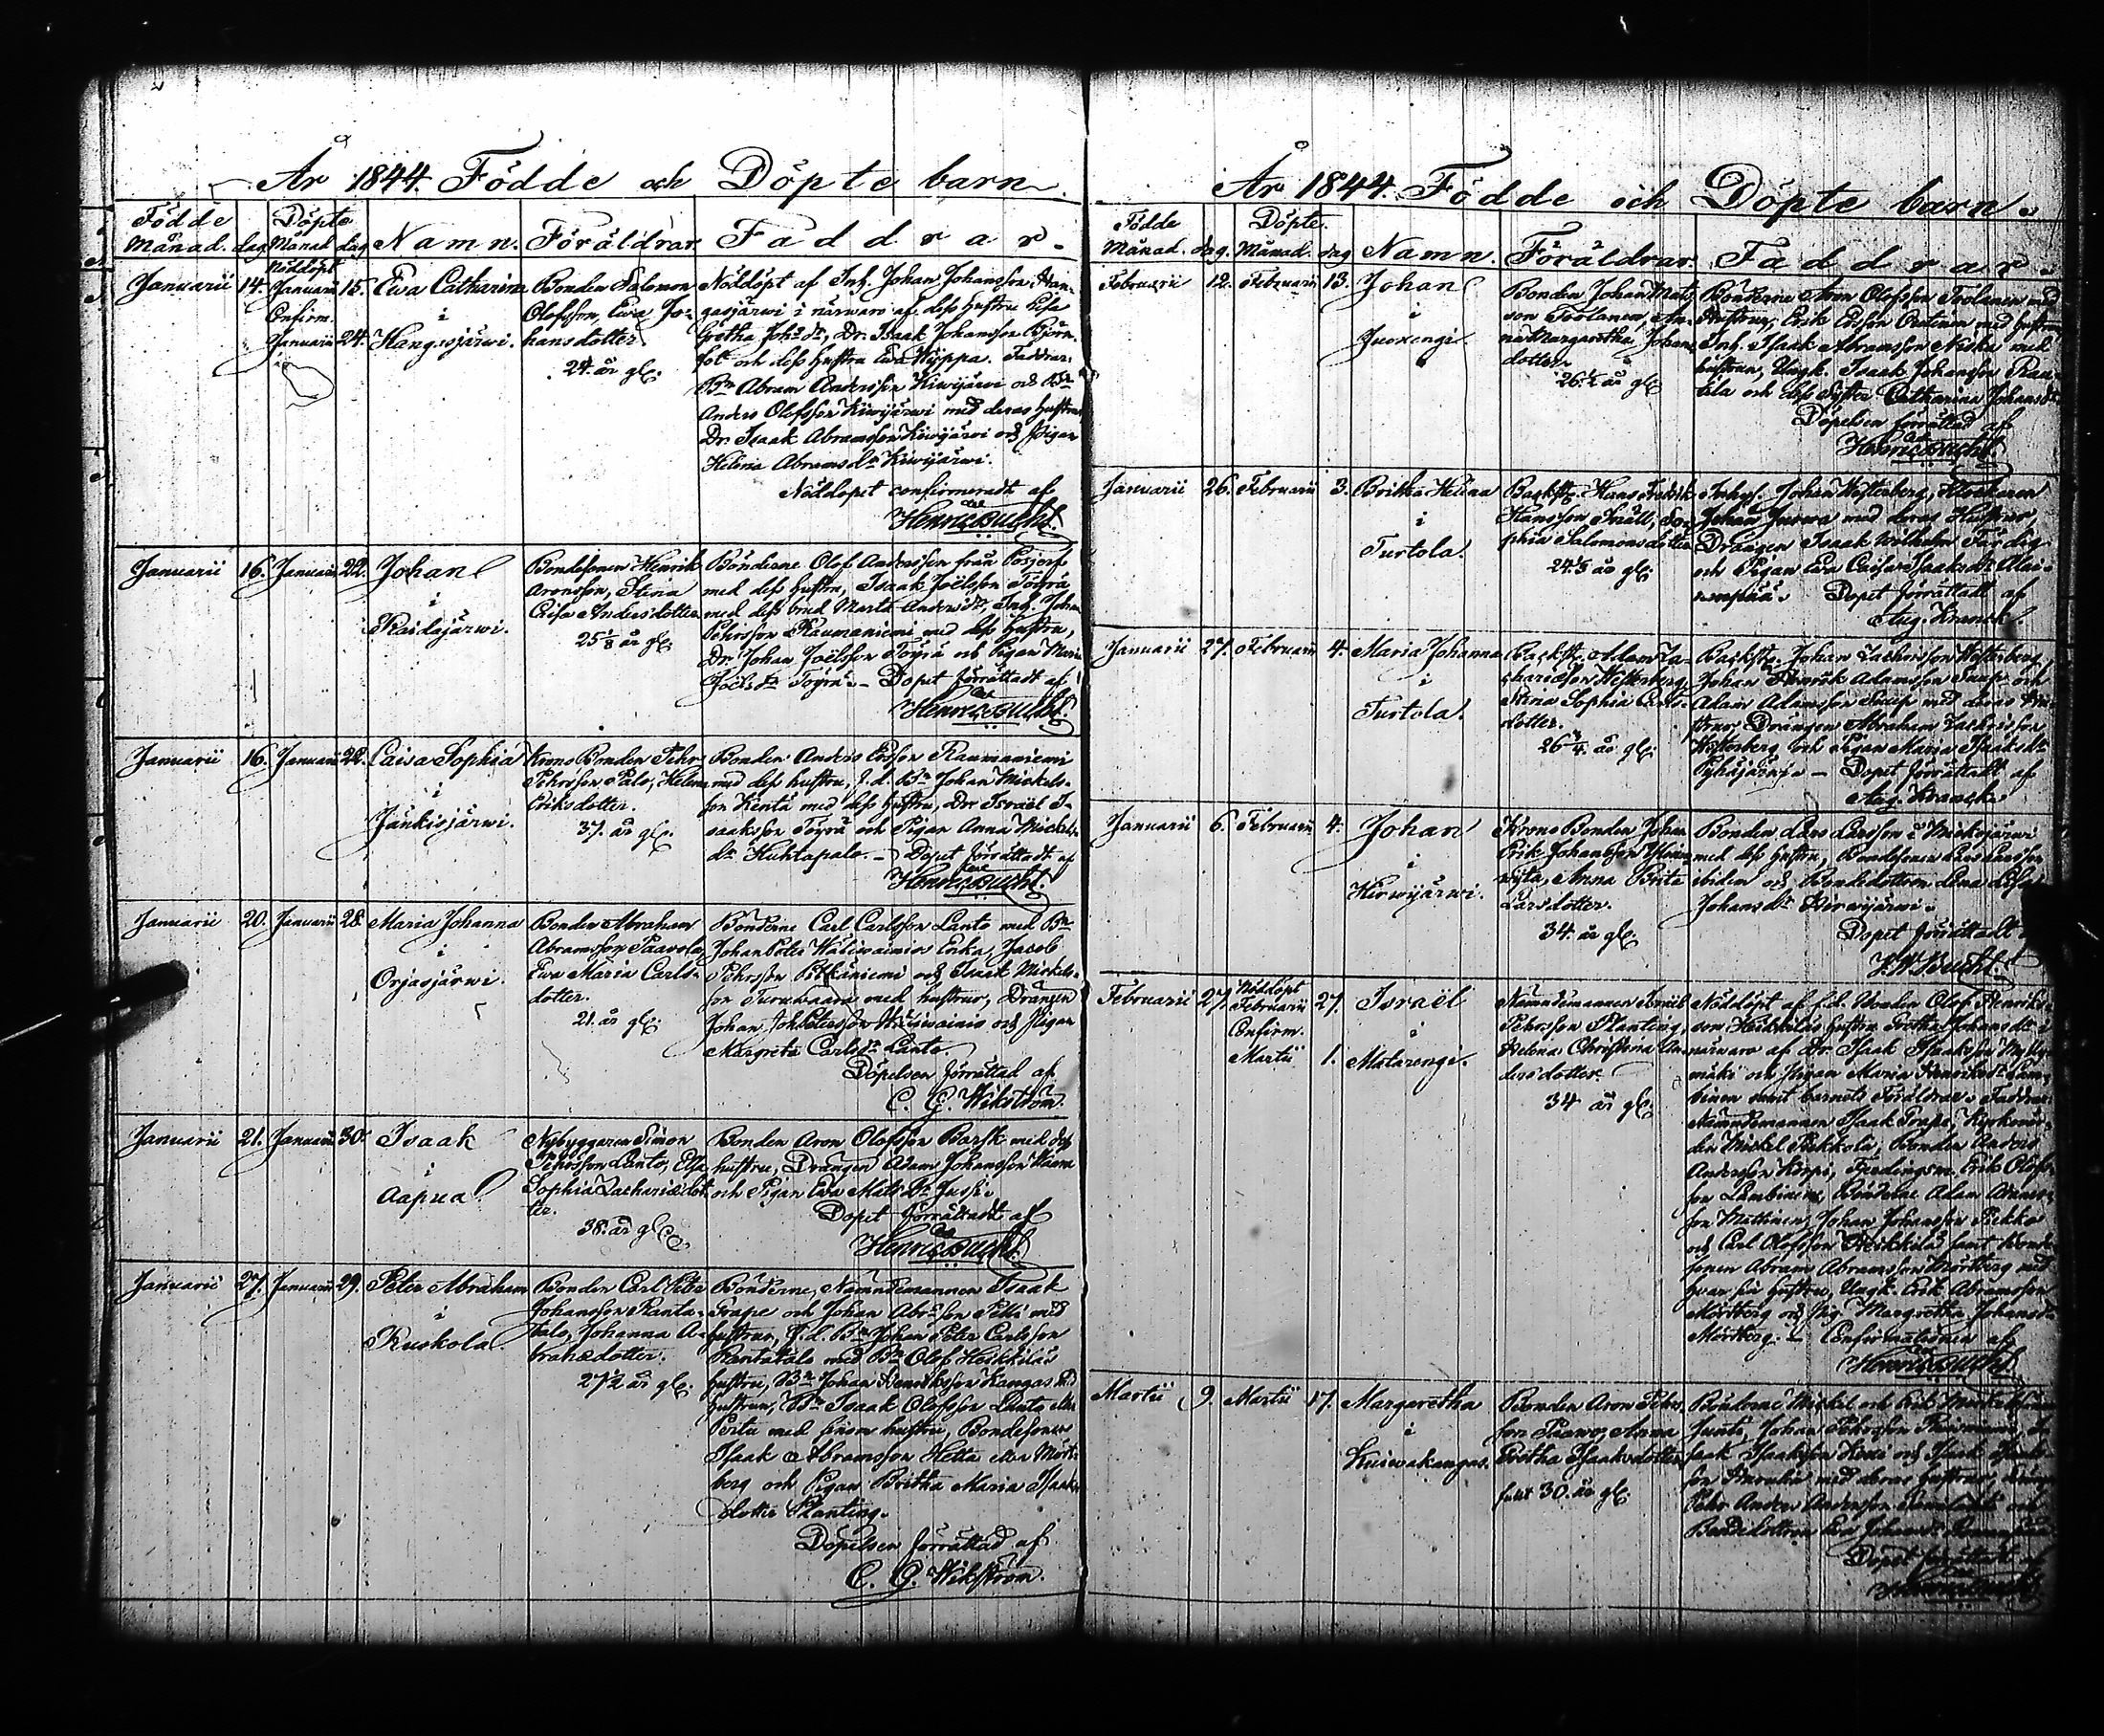 År 1844. Födde och Döpte barn.
Födde Döpte
Månad. dag Månad dag Namn. Föräldrar Faddrar.
Januarii 14. Nöddöpt Januarii 15. Confirm. Januarii 24.
Ewa Catharina
i
Hangasjärwi.
Bonden Salomon
Olofsson, Ewa Jo-
hansdotter
24. år gl.
Nöddöpt af Inh. Johan Johansson Han-
gasjärwi i närwaro af dess hustru Elsa
Gretha Joh:s dr, Dr. Isaak Johansson Björn-
fot och dess hustru Ewa Wyppa. Faddrar:
Bn Abram Andersson Kiwijärwi och Bn
Anders Olofsson Kiwijärwi med deras hustrur
Dr. Isaak Abramsson Kiwijärwi och Pigan
Helena Abramsdr Kiwijärwi.
Nöddopet confirmeradt af
Henric Bucht.
Januarii 16. Januarii 22.
Johan
i
Kaidajärwi.
Bondesonen Henrik
Aronsson, Stina
Caisa Andersdotter
25 1/8 år gl.
Bönderne Olof Andersson från
med dess hustru, Isaak Joëlsson Töyrä
med dess Marta Andersdr, Inh. Johan
Pehrsson Raumaniemi med dess hustru,
Dr. Johan Joëlsson Töyrä och Pigan Maria
Joëlsdr Töyrä. – Dopet förrättadt af
Henric Bucht.
Januarii 16. Januarii 22.
Caisa Sophia
i
Jänkisjärwi.
Krono Bonden Pehr
Pehrsson Palo, Helena
Eriksdotter.
37. år gl.
Bonden Anders Ersson Raumaniemi
med dess hustru, f.d. Bn Johan Mickels-
son Kenta med dess hustru, Dr Israel I-
saaksson Töyrä och Pigan Anna Mickels-
dr Huhtapalo. – Dopet förrättadt af
Henric Bucht.
Januarii 20. Januarii 28.
Maria Johanna
i
Orjasjärwi.
Bonden Abraham
Abramsson Paavola,
Ewa Maria Carls-
dotter.
21. år gl.
Bönderne Carl Carlsson Lanto med Bn
Johan Peter Waliwainios Enka, Jacob
Pehrsson Pitkäniemi och Isaak Mickels-
son Turuwaara med hustrur, Drängen
Johan Joh Petersson och Pigan
Margreta Carlsdr Lanto.
Döpelsen förrättad af
C. G. Wikström.
Januarii 21. Januarii 30.
Isaak
i
Aapua
Nybyggaren Simon
Pehrsson Lanto, Elsa
Sophia Zachariædot-
ter.
38. år gl.
Bonden Aron Olofsson Barsk med dess
hustru, Drängen Adam Johansson Waara
och Pigan Ewa Mats dr Jussi.
Dopet förrättadt af
Henric Bucht.
Januarii 27. Januarii 29.
Peter Abraham
i
Ruskola
Bonden Carl Peter
Johansson Ranta-
talo, Johanna A-
brahsdotter.
27 1/2 år gl.
Bönderne, Nämndemannen Isaak
Grape och Johan Abr:sson Pelli med
hustrur, f.d. Bn Johan Peter Carlsson
Rantatalo med Bn Olof Heikkiläs
hustru, Bn Johan Henriksson Kangas med
hustrur, Bn Isaak Olofsson Lanto eller
Perta med sinom hustru, Bondesonen
Isaak Abramsson Hetta eller Mört-
berg och Pigan Britha Maria Isaaks
dotter Planting.
Döpelsen förrättad af
C. G. Wikström.
År 1844. Födde och Döpte barn.
Födde Döpte.
Månad. dag. Månad. dag Namn. Föräldrar. Faddrar.
Februarii 12. Februarii 13.
Johan
i
Juoxengi
Bonden Johan Mats
son Toolanen, An-
na Margaretha Johans
dotter
26 1/2 år gl.
Bönderne Aron Olofsson Toolanen med
hustrur, Erik Ersson med hustru
Inh. Isaak Abramsson Niska med
hustrun, Ungk. Isaak Johansson Rau-
tila och dess syster Catharina Johansdr
Döpelsen förrättad af
Henric Bucht.
Januarii 26. Februarii 3.
Britha Helena
i
Turtola.
Backst. Hans Fredrik
Hansson Snäll, So-
phia Salomonsdotter
24 1/3 år gl.
Inhys. Johan Westerberg, Klockaren
Johan Jurwa med deras Hustrur,
Drängen Isaak Wilhelm
och Pigan Ewa Caisa Isaaksdr Alai-
nenpää. Dopet förrättadt af
Aug. Kranck.
Januarii 27. Februarii 4.
Maria Johanna
i
Turtola.
Backst. Adam Za-
chariæson Westerberg,
Stina Sophia Carls-
dotter.
26 3/4. år gl.
Backst. Johan Zachrisson Westerberg,
Johan Henrik Adamsson Snup och
Adam Adamsson Snup med deras Hu-
strur, Drängen Abraham Zachrisson
Westerberg och Pigan Maria Isaaksdr
Pyhäjärwi. – Dopet förrättadt af
Aug. Kranck.
Januarii 6. Februarii 4.
Johan
i
Hirwijärwi.
Krono Bonden Johan
Erik Johansson
Anna Brita
Larsdotter.
34. år gl.
Bonden Lars Larsson i Miekojärwi
med dess hustru, Bondesonen Lars Larsson
ibidem och Bondedottren Lena Lisa
Johansdr Hirwijärwi.
Dopet förrättadt
J. W. Bucht.
Februarii 27. Nöddöpt Februarii 27. Confirm. Martii 1.
Israël
i
Matarengi.
Nämndemannen Israel
Pehrsson Planting,
Helena Christina An-
dersdotter.
34 år gl.
Nöddöpt af f.d. Bonden Olof Henriks-
son Heikkiläs hustru Gretha Johansdr i
närwaro af Dr. Isaak Isaaksson Mylly-
mäki och Pigan Maria Henriksdr
samt barnets Föräldrar. Faddrar:
Nämndemannen Isaak Grape, Kyrkowär-
den Mickel Pekkola, Bonden Anders
Andersson Korpi, Erik Olofs-
son Lambinen, Bönderne Adam Adams-
son Mattinen, Johan Johansson Piekko
och Carl Olofsson Heikkilä samt Bonde
sonen Abram Abramsson Mörtberg med
hwar sin hustru, Ungk. Erik Abramsson
Mörtberg och Pig. Margretha Johansdr
Mörtberg. – Confirmationen af
Henric Bucht
Martii 9. Martii 17.
Margaretha
i
Kuiwakangas.
Bonden Aron Pehrs
son Paawo, Anna
Gretha Isaaksdotter
fullt 30. år gl.
Bönderne Mickel och Erik
Junti, Johan Pehrsson I-
saak Isaaksson och Isaak
son med deras hustrur,
Pehr Anders Andersson och
Bondedottren Ewa Johansdr
Dopet förrättadt af